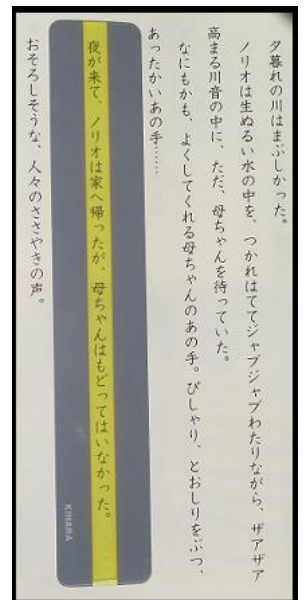 夕暮れの川はまぶしかった。
ノリオは生ぬるい水の中を、つかれはててジャブジャブわたりながら、ザアザア
高まる川音の中に、ただ、母ちゃんを待っていた。
なにもかも、よくしてくれる母ちゃんのあの手。ぴしゃり、とおしりをぶつ、
あったかいあの手……
夜が来て、ノリオは家へ帰ったが、母ちゃんはもどってはいなかった。
KIHARA
おそろしそうな、人々のささやきの声。